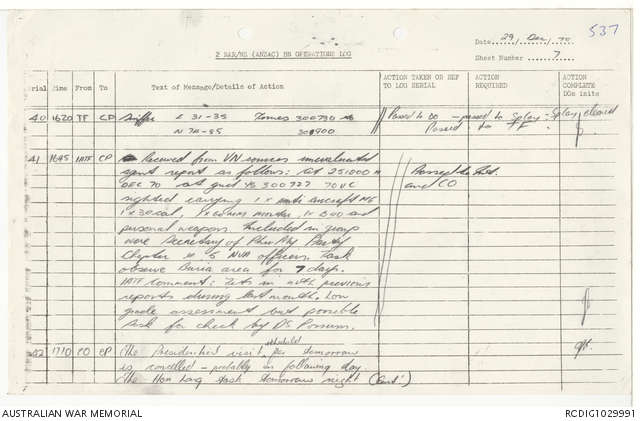 537
2 RAR/NZ (ANZAC) BN OPERATIONS LOG
Date 29 Dec 70
Sheet Number 7
Serial Time From To Text of Message/Details of Action ACTION TAKEN OR REF TO LOG SERIAL ACTION REQUIRED ACTION COMPLETE DOs inits
40 1620 TF CP 31-35 300790
N 70-85 300900
Passed to DO - passed to - cleared
Passed to TF
41 1645 1ATF CP Received from VN sources unevaluated
agent report as follows: At 251000 H
DEC 70 at grid YS 300727 70 VC
sighted carrying 1 x anti aircraft MG
1 x 30 cal, 1 x 60mm mortar, 1 x B40 and
personal weapons. Included in group
were Secretary of Party
Chapter # 5 NVA officers. Task
observe Baria area for 7 days.
1ATF comment: Fits in with previous
reports during last month. Low
grade assessment but possible
task for check by DS Possum.
Passed to
and CO
42 1710 CO CP The Presidential visit scheduled for tomorrow
is cancelled - probably on following day
The Hon Long task tomorrow night (Cont')
AUSTRALIAN WAR MEMORIAL
RCDIG1029991